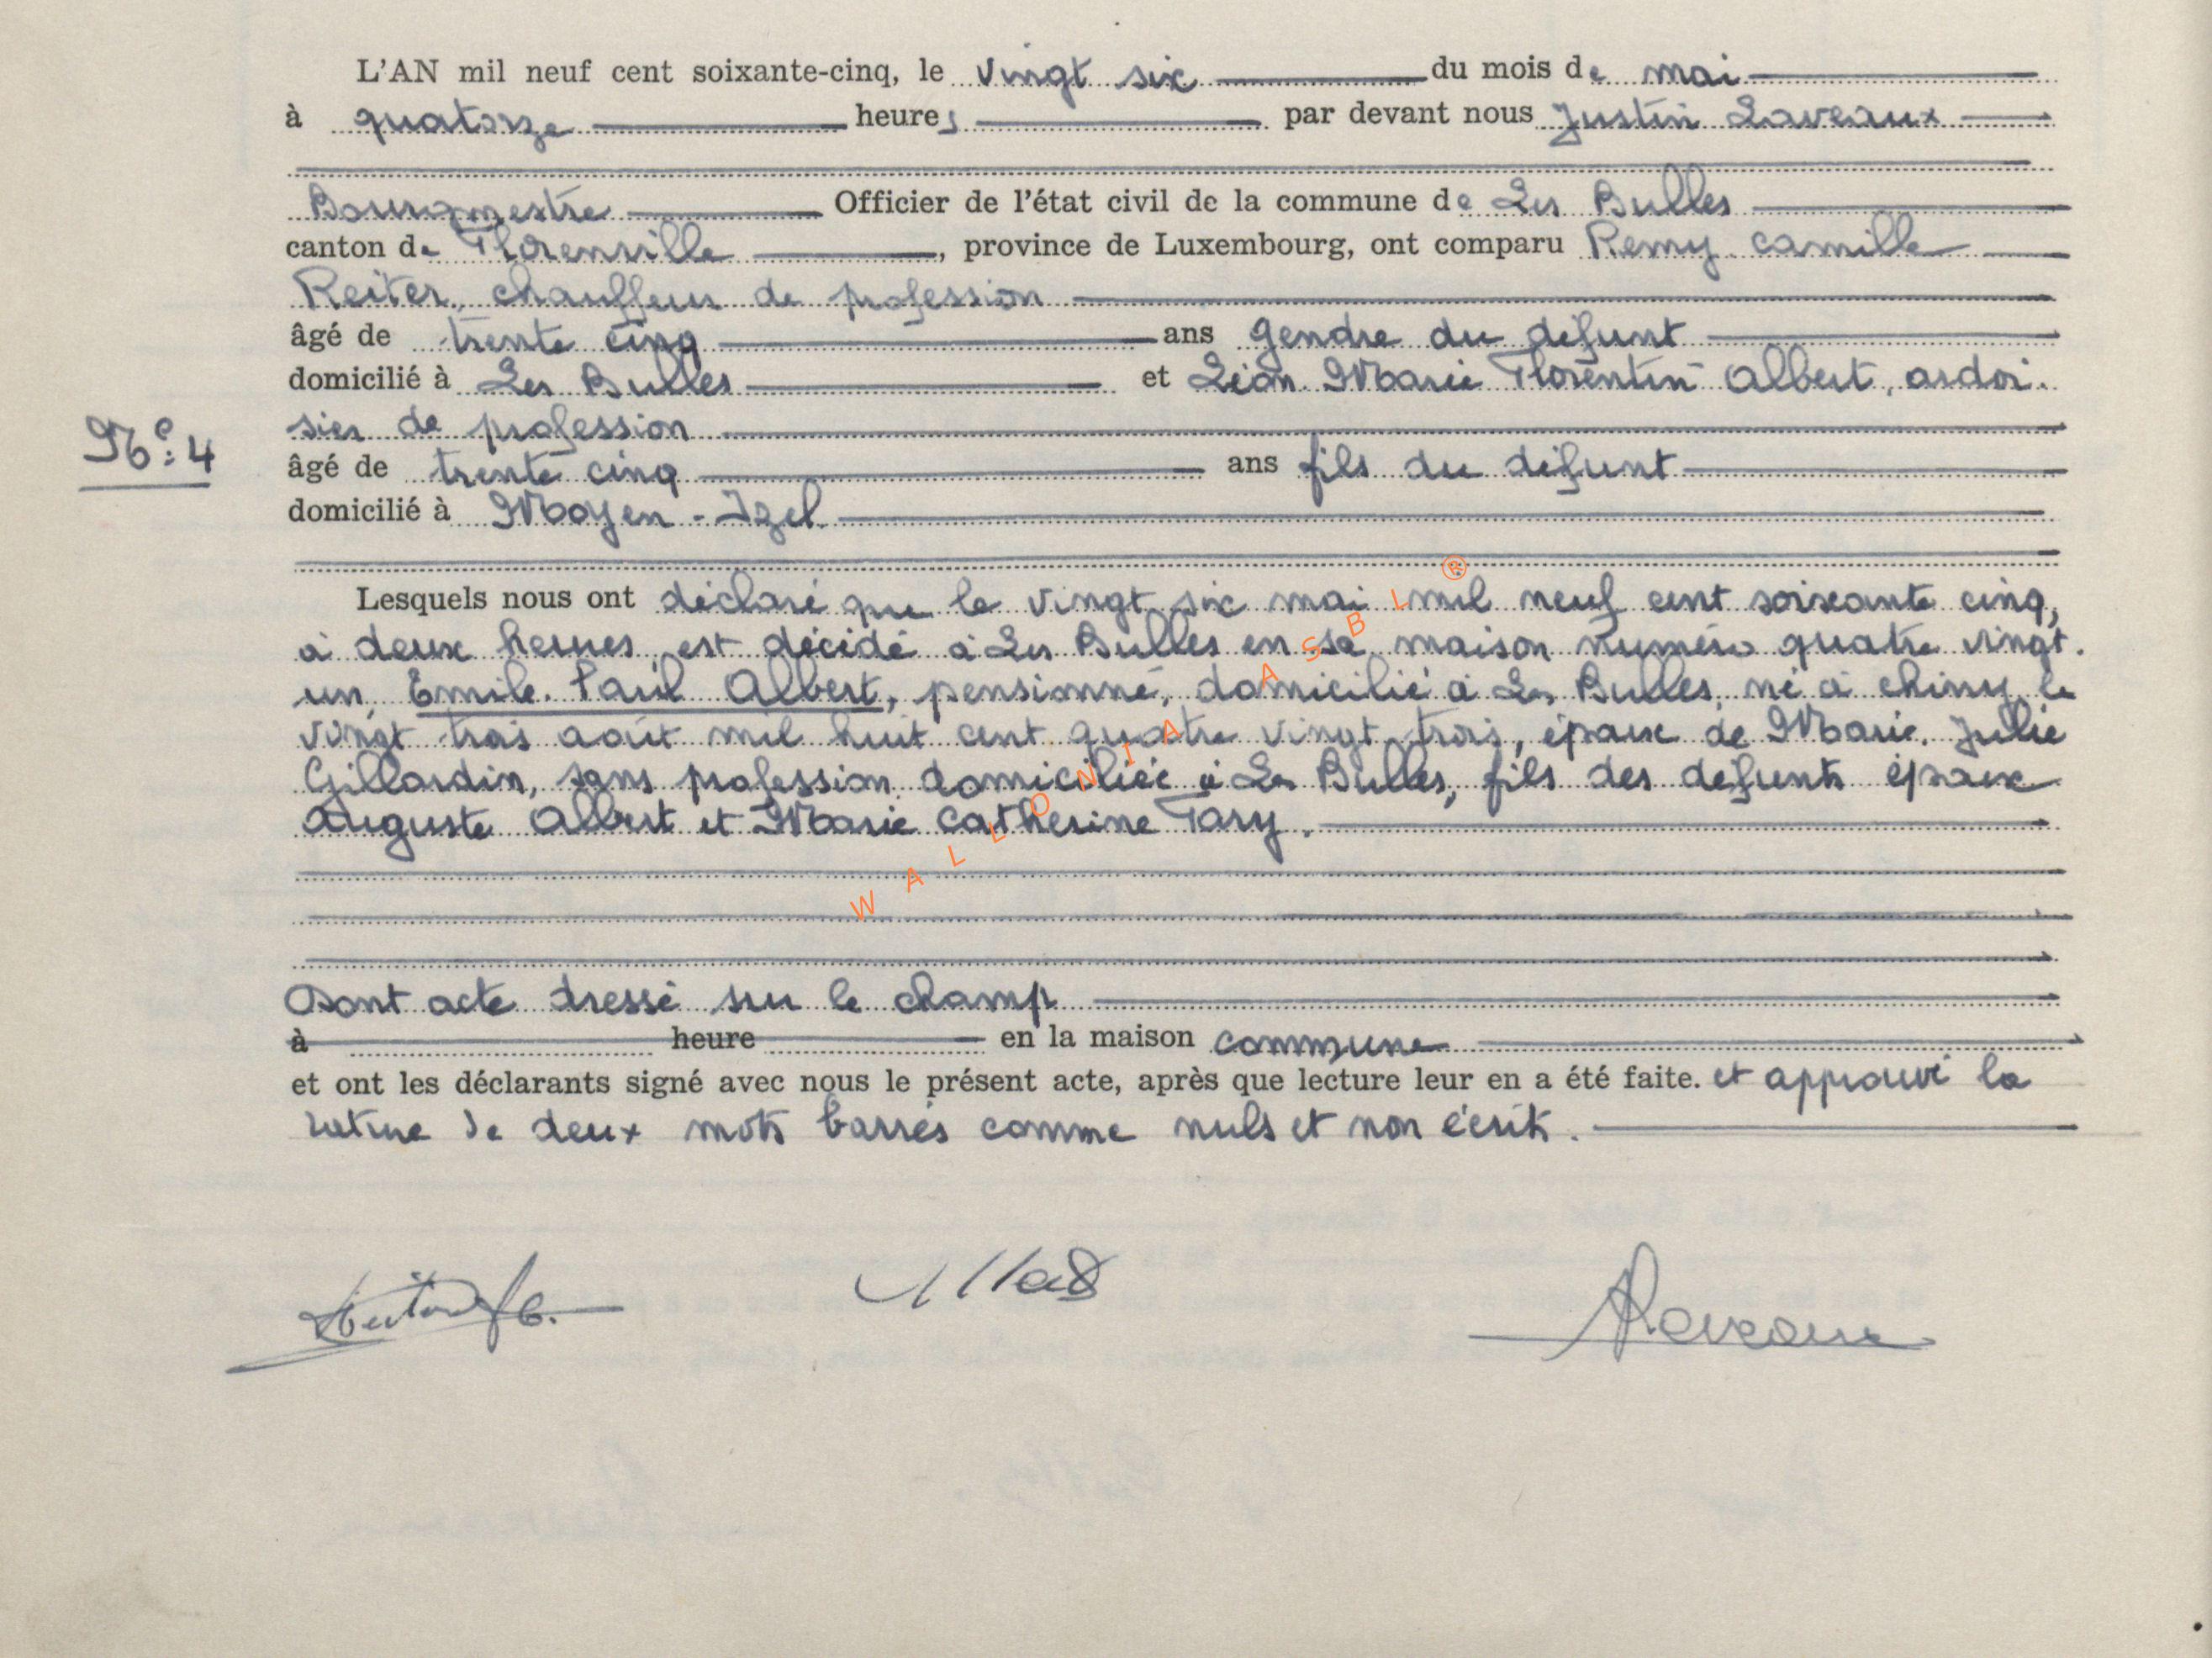 L'AN mil neuf cent soixante-cinq, le vingt six du mois de mai
à quatorze heures par devant nous Justin Laveaux
Bourgmestre Officier de l'état civil de la commune de Les Bulles
canton de Florenville, province de Luxembourg, ont comparu Remy Camille
Reiter, chauffeur de profession
âgé de trente cinq ans gendre du défunt
domicilié à Les Bulles et Léon Marie Florentin Albert, ardoi-
sier de profession
Nº: 4
âgé de trente cinq ans fils du défunt
domicilié à Moyen-Izel
Lesquels nous ont déclaré que le vingt six mai mil neuf cent soixante cinq,
à deux heures, est décédé à Les Bulles en sa maison numéro quatre vingt-
un, Emile Paul Albert, pensionné, domicilié à Les Bulles, né à Chiny le
vingt trois août mil huit cent quatre vingt trois, époux de Marie Julie
Gillardin, sans profession domiciliée à Les Bulles, fils des défunts époux
Auguste Albert et Marie Catherine Tary.
WALLONIA ASBL ®
Dont acte dressé sur le champ
à heure en la maison commune
et ont les déclarants signé avec nous le présent acte, après que lecture leur en a été faite. et approuvé la
rature de deux mots barrés comme nuls et non écrits.